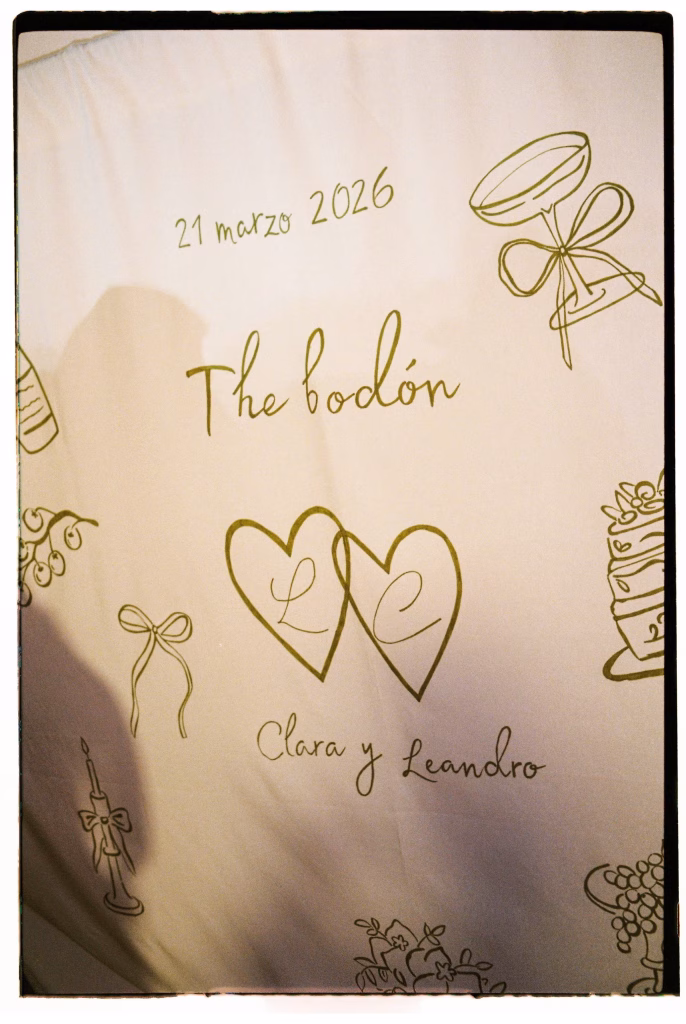 21 marzo 2026
The bodón
L C
Clara y Leandro